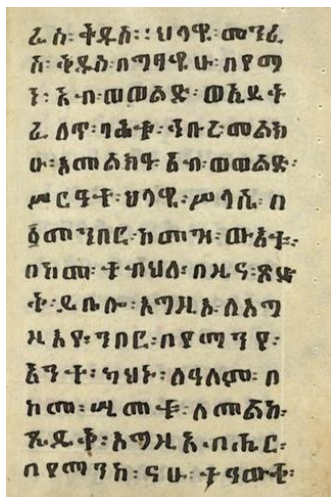 ፈስ፡ ቅዱስ፡፡ ህላዌ፡ መንፈ
ስ፡ ቅዱስ፡ በማኅፃዊሁ፡ በየማ
ን፡ አብ፡ ወወልድ፡ ወኢይት
ፈለጥ፡ ባሕቱ፡ ኅቡረ፡ መልክ
ሁ፡ አመልክዓ፡ አብ፡ ወወልድ፡
ሥርዓተ፡ ህላዌ፡ ሥላሴ፡ በ
፩መንበር፡ ከመዝ፡ ውእቱ፡
በከመ፡ ተብህለ፡ በዜና፡ ጽድ
ቅ፡ ይቤሎ፡ እግዚእ፡ ለእግ
ዚእየ፡ ንበር፡ በየማንየ፡
አንተ፡ ካህኑ፡ ለዓለም፡ በ
ከመ፡ ሢመቱ፡ ለመልከ፡
ጼዴቅ፡ እግዚአብሔር፡
በየማንከ፡ ናሁ፡ ተዓውቀ፡